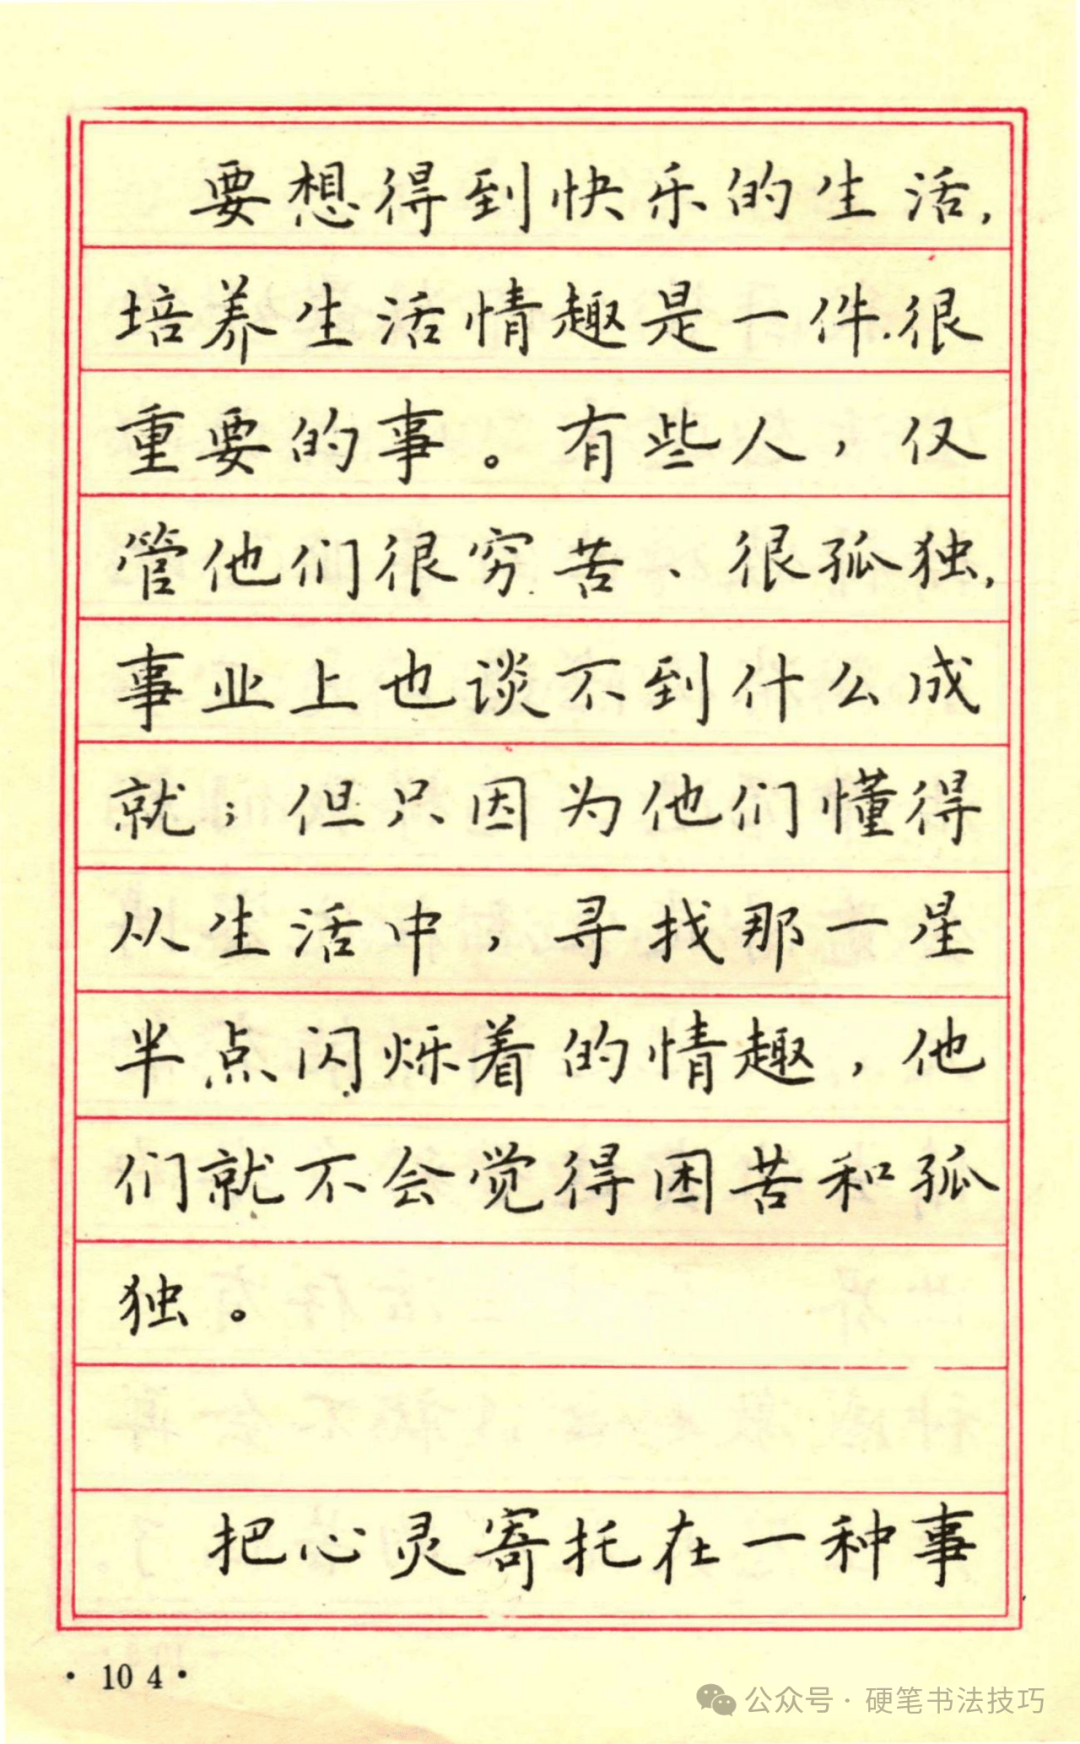 要想得到快乐的生活，
培养生活情趣是一件很
重要的事。有些人，仅
管他们很穷苦、很孤独，
事业上也谈不到什么成
就；但只因为他们懂得
从生活中，寻找那一星
半点闪烁着的情趣，他
们就不会觉得困苦和孤
独。
把心灵寄托在一种事
·104·
公众号·硬笔书法技巧